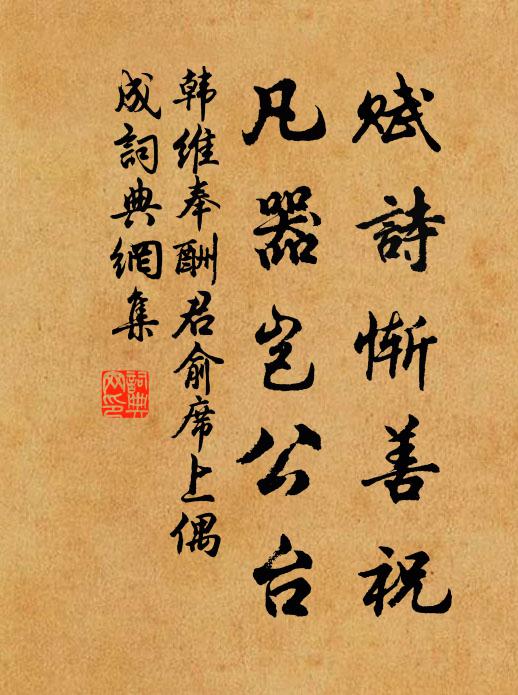 赋詩惭善祝
凡器岂公台
韩维奉酬君俞席上偶
成詞典網集
詞典
网印